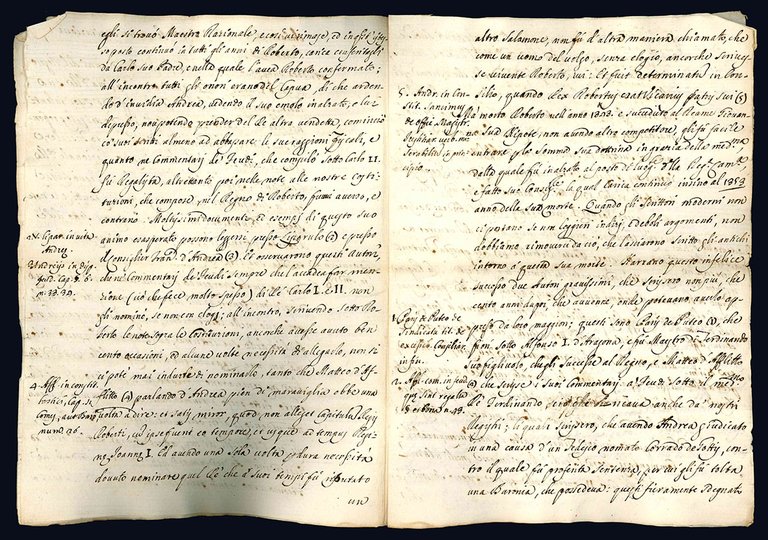 egli si trovò Maestro Razionale, e così vi rimase, ed in questo
posto continuò in tutti gli anni di Roberto, carica conferitagli
da Carlo suo Padre, e nella quale l'avea Roberto confermato;
all'incontro tutti gli onori erano del Capua; di che arden-
do d'invidia Andrea, vedendo il suo emolo inalzato, e lui
depresso, non potendo prender del Rè altra vendetta, cominciò
co' suoi scritti almeno ad abbassare le sue raggioni Fiscali, e
quanto ne' Commentarj de' Feudi, che compilò sotto Carlo II.
fù Regalista, altrettanto poi nelle note alle nostre Costi-
tuzioni, che compose nel Regno di Roberto, fummi avverso, e
contrario. Moltissimi documenti, ed esempj di questo suo
animo esasperato possono leggersi presso Liparulo (2) e presso
il Consiglier Fran. d'Andrea (3). Ed osservarono questi Autori,
che ne' Commentarj de' Feudi sempre che l'accadea far men-
zione (ciò che fece molto spesso) di Rè Carlo I. e II. non
gli nominò, se non con elogj; all'incontro, scrivendo sotto Ro-
berto le note sopra le Costituzioni, ancorche avesse avuto ben
cento occasioni, ed alcune volte necessità di allegarlo, non si
potè mai indurre di nominarlo, tanto che Matteo d'Af-
flitto (4) parlando d'Andrea pien di maraviglia ebbe una
volta a dire: et satis miror, quod non alleget Capitula Regis
Roberti, cum ipse fuerit eo tempore, et usque ad tempus Regi-
nę Joannę I. Ed avendo una sola volta per dura necessità
dovuto nominare quel Rè che a' suoi tempi fù riputato
un
2. V. Lipar. in vita
Andreę
3. Andreys in Disp.
feud. Cap. §.
n. 38. 39.
4. Aff. in constit.
num. 36.
altro Salomone, non fù d'altra maniera chiamato, che
come un uomo del volgo, senza elogio, ancorche scrivesse
se vivente Roberto, ivi: Et fuit determinatum in Con-
silio, quando Rex Robertus erat Vicarius Patris sui (5)
Ma morto Roberto nell'anno 1343. e succeduta al Reame Giovan-
na sua Nipote, non avendo altro competitore, gli fù facile
entrare per la somma sua dottrina in grazia della medma
dalla quale fù inalzato al posto di Luogte della Regia Camra
e fatto suo Consigre; la qual carica continuò insino al 1353
anno della sua morte. Quando gli Scrittori moderni non
ci portano se non leggieri indizj, e deboli argumenti, non
dobbiamo rimoverci da ciò, che lasciarono scritto gli antichi
intorno a questa sua morte. Narrano questo infelice
successo due Autori gravissimi, che scrissero non più, che
cento anni dopo, che avvenne, onde potevano averlo ap-
preso da loro maggiori; questi sono Paris de Puteo (1), che
fiorì sotto Alfonso I. d'Aragona, e fù Maestro di Ferdinando
suo figliuolo, che gli successe al Regno, e Matteo d'Afflitto
(2) che scrisse i suoi Commentarj a' Feudi sotto il medmo
Rè Ferdinando anche da' nostri
Registri; li quali scrissero, che avendo Andrea giudicato
in una causa d'un Tedesco nomato Corrado de Gotty, con-
tro il quale fù proferita sentenza, per cui gli fù tolta
una Baronia, che possedeva: questi fieramente sdegnato
5. Andr. in Con-
stit. Sancimus
de offic. Magistr.
Justitiar.
1. Paris de Puteo de
Sindicatu tit. de
in fin.
2.